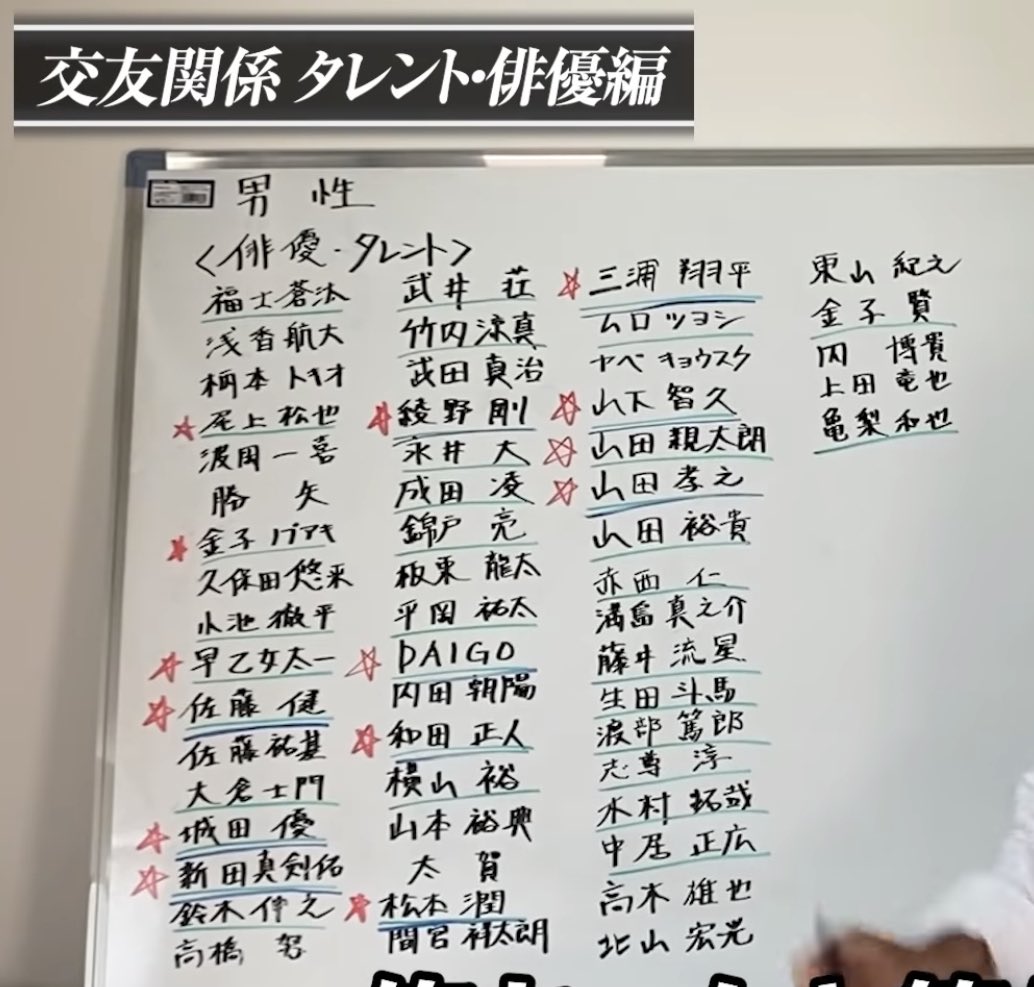 交友関係 タレント・俳優編
男性
<俳優・タレント>
福士蒼汰
浅香航大
柄本トキオ
☆尾上松也
波岡一喜
勝 矢
☆金子ノブアキ
久保田悠来
小池徹平
☆早乙女太一
☆佐藤 健
佐藤祐基
大倉士門
☆城田 優
☆新田真剣佑
鈴木伸之
高橋 努
武井 荘
竹内涼真
武田真治
☆綾野 剛
永井 大
成田 凌
錦戸 亮
板東 龍太
平岡 祐太
☆DAIGO
内田朝陽
☆和田 正人
横山 裕
山本 裕典
太 賀
☆松本 潤
間宮祥太朗
☆三浦 翔平
ムロツヨシ
ヤベ キョウスケ
☆山下 智久
☆山田親太朗
☆山田 孝之
山田 裕貴
赤西 仁
満島真之介
藤井 流星
生田 斗馬
渡部 篤郎
志尊 淳
木村 拓哉
中居 正広
高木 雄也
北山 宏光
東山 紀之
金子 賢
内 博貴
上田 竜也
亀梨 和也